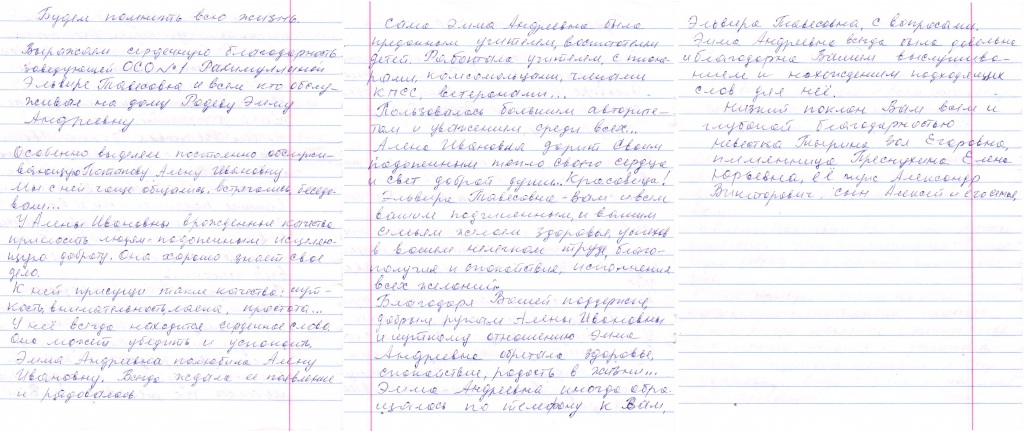 Будем помнить всю жизнь.
Выражаем сердечную благодарность
заведующей ОСО №1 Рахимуллиной
Эльвире Тависовне и всем кто обслу-
живал на дому Родеву Эмму
Андреевну
Особенно выделяем постоянно обслужи-
вающую Потапову Алену Ивановну
Мы с ней чаще общались, встречались беседо-
вали...
У Алены Ивановны врожденные качества
приносить людям-подопечным исцеляю-
щую доброту. Она хорошо знает свое
дело.
К ней присущи такие качества: чут-
кость, внимательность, ласка, простота...
У неё всегда находится сердечное слово
Она может убедить и успокоить.
Эмма Андреевна полюбила Алену
Ивановну. Всегда ждала её появление
и радовалась
Сама Эмма Андреевна была
преданным учителем, воспитателем
детей. Работала учителем, с пионе-
рами, комсомольцами, членами
КПСС, ветеранами...
Пользовалась большим авторите-
том и уважением среди всех...
Алена Ивановна дарит своим
подопечным тепло своего сердца
и свет доброй души. Красавица!
Эльвира Тависовна - Вам и всем
вашим подчиненным, и вашим
семьям желаем здоровья, успехов
в вашем нелегком труде, благо-
получия и спокойствия, исполнения
всех желаний.
Благодаря Вашей поддержке,
добрым рукам Алены Ивановны
и чуткому отношению Эмма
Андреевна обретала здоровье,
спокойствие, радость в жизни...
Эмма Андреевна иногда обра-
щалась по телефону к Вам,
Эльвира Тависовна, с вопросами.
Эмма Андреевна всегда была довольна
и благодарна Вашим выслушива-
нием и нахождением подходящих
слов для неё.
Низкий поклон Вам всем и
глубокой благодарностью
невестка Егоровна,
племянница Преснухина Елена
Юрьевна, её муж Александр
Викторович, сын Алексей и его семья.